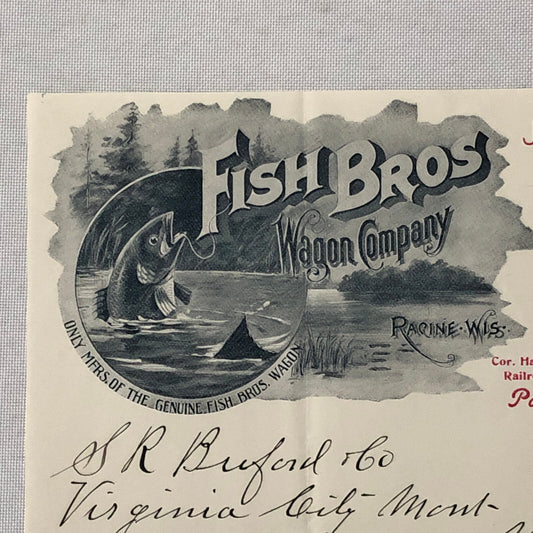 FISH BROS
Wagon Company
RACINE. WIS.
ONLY MFRS. OF THE GENUINE FISH BROS. WAGON
Cor. Ha
Railro
S R Buford & Co
Virginia City Mont-